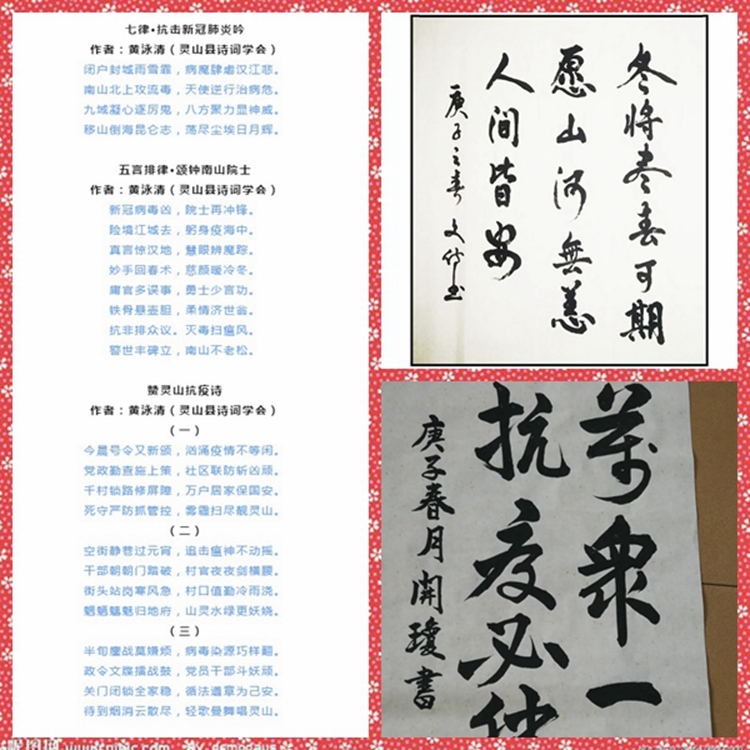 七律·抗击新冠肺炎吟
作者：黄泳清（灵山县诗词学会）
闭户封城雨雪霏，病魔肆虐汉江悲。
南山北上攻流毒，天使逆行治病危。
九域凝心逐厉鬼，八方聚力显神威。
移山倒海昆仑志，荡尽尘埃日月辉。
五言排律·颂钟南山院士
作者：黄泳清（灵山县诗词学会）
新冠病毒凶，院士再冲锋。
险境江城去，躬身疫海中。
真言惊汉地，慧眼辨魔踪。
妙手回春术，慈颜暖冷冬。
庸官多误事，勇士少言功。
铁骨悬壶胆，柔情济世翁。
抗非排众议。灭毒扫瘟风。
警世丰碑立，南山不老松。
赞灵山抗疫诗
作者：黄泳清（灵山县诗词学会）
（一）
今晨号令又新颁，汹涌疫情不等闲。
党政勤查施上策，社区联防斩凶顽。
千村锁路修屏障，万户居家保国安。
死守严防抓管控，雾霾扫尽靓灵山。
（二）
空街静巷过元宵，追击瘟神不动摇。
干部朝朝门踏破，村官夜夜剑横腰。
街头站岗寒风急，村口值勤冷雨浇。
魑魅魍魉归地府，山灵水绿更妖娆。
（三）
半旬鏖战莫嫌烦，病毒染源巧样翻。
政令文牒擂战鼓，党员干部斗妖顽。
关门闭锁全家稳，循法遵章为己安。
待到烟消云散尽，轻歌曼舞唱灵山。
冬将尽春可期
愿山河無恙
人间皆安
庚子之春
萬眾一
抗疫必
庚子春月開瓊書